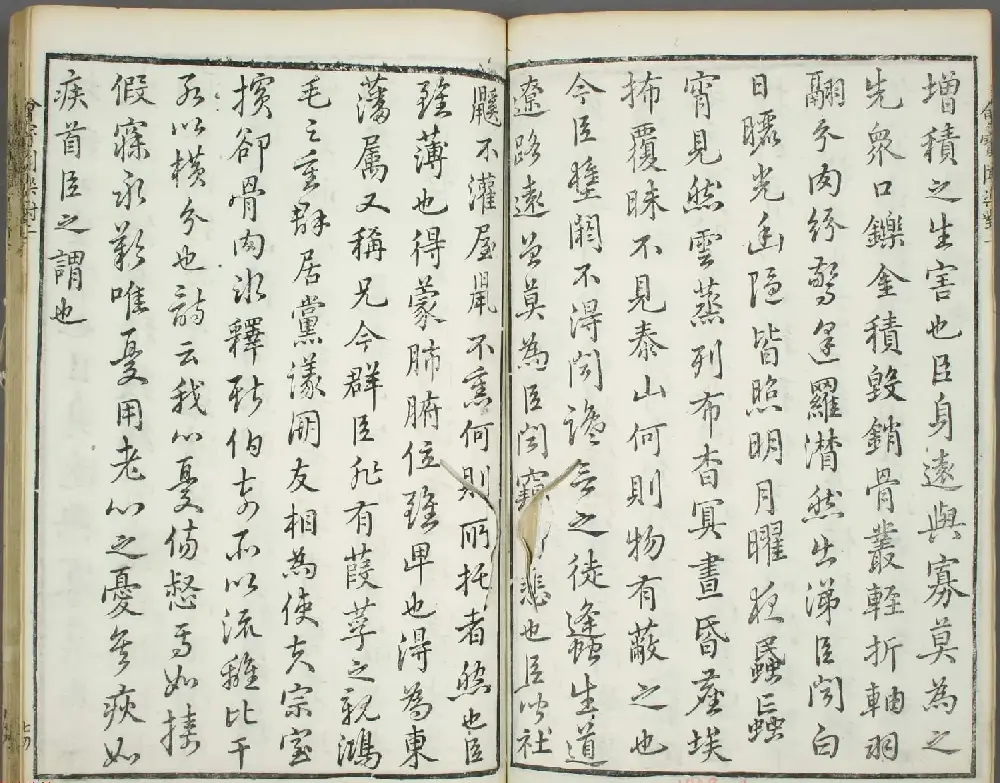 增積之生害也臣身遠與寡莫為之
先衆口鑠金積毀銷骨叢輕折軸羽
翮飛肉紛驚逢羅潸然出涕臣聞白
日曬光幽隱皆照明月曜夜蟁蝱
宵見然雲蒸列布杳冥晝昏塵埃
抪覆昧不見泰山何則物有蔽之也
今臣壅閼不得聞讒言之徒蠭生道
遼路遠曾莫為臣聞竊悲也臣聞社
鼷不灌屋鼠不熏何則所托者然也臣
雖薄也得蒙肺腑位雖卑也得為東
藩屬又稱兄今群臣非有葭莩之親鴻
毛之重群居黨議朋友相為使夫宗室
擯卻骨肉冰釋斯伯奇所以流離比干
所以橫分也詩云我心憂傷惄焉如擣
假寐永歎唯憂用老心之憂矣疢如
疾首臣之謂也